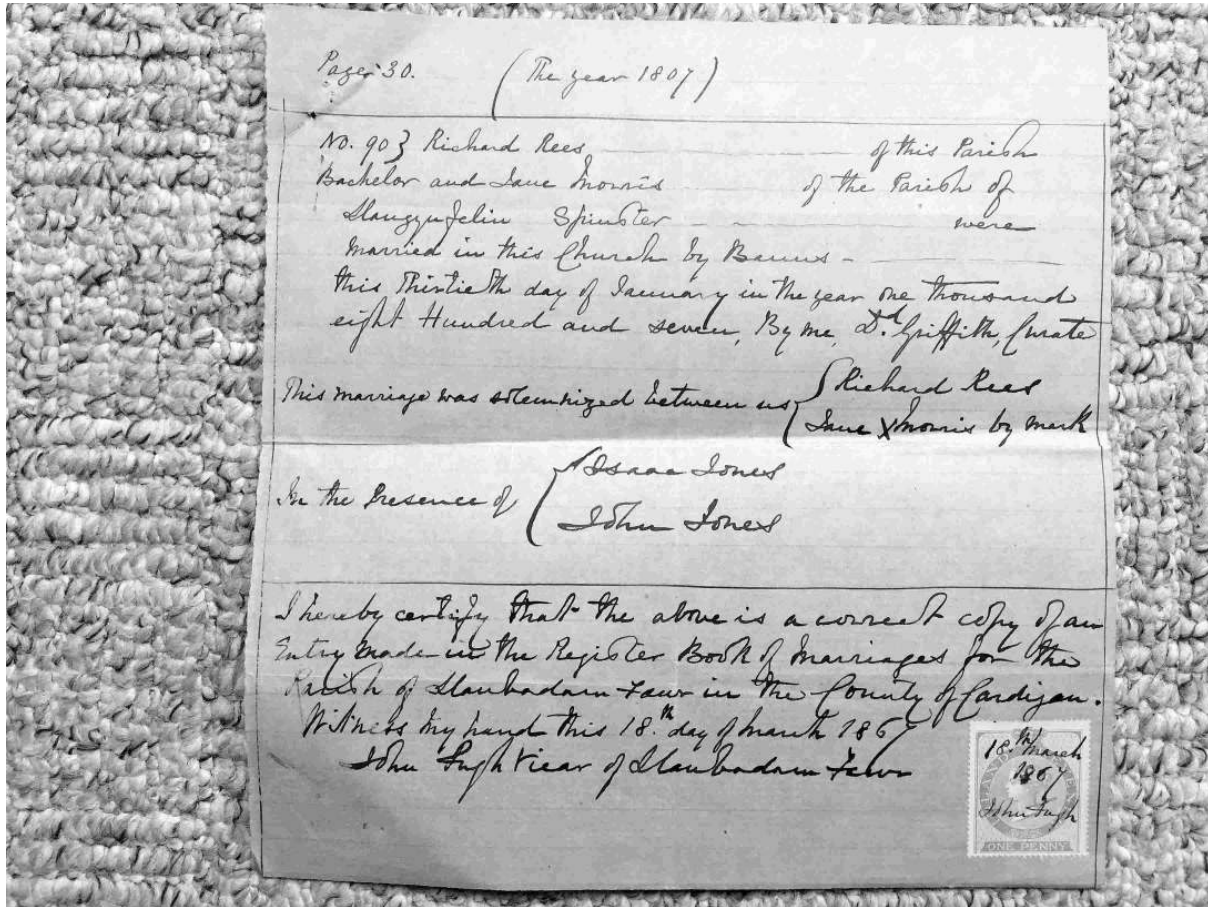 Page 30. (The year 1807)
No. 90} Richard Rees of this Parish
Bachelor and Jane Morris of the Parish of
Llangynfelin Spinster were
Married in this Church by Banns -
this Thirtieth day of January in the year one thousand
eight Hundred and seven, By me, Dd. Griffith, Curate
This marriage was solemnized between us { Richard Rees
Jane X Morris by mark
In the Presence of { Isaac Jones
John Jones
I hereby certify that the above is a correct copy of an
Entry made in the Register Book of Marriages for the
Parish of Llanbadarn Fawr in the County of Cardigan.
Witness my hand this 18.th day of March 1867
John Pugh Vicar of Llanbadarn Fawr
18.th March
1867
John Pugh
ONE PENNY